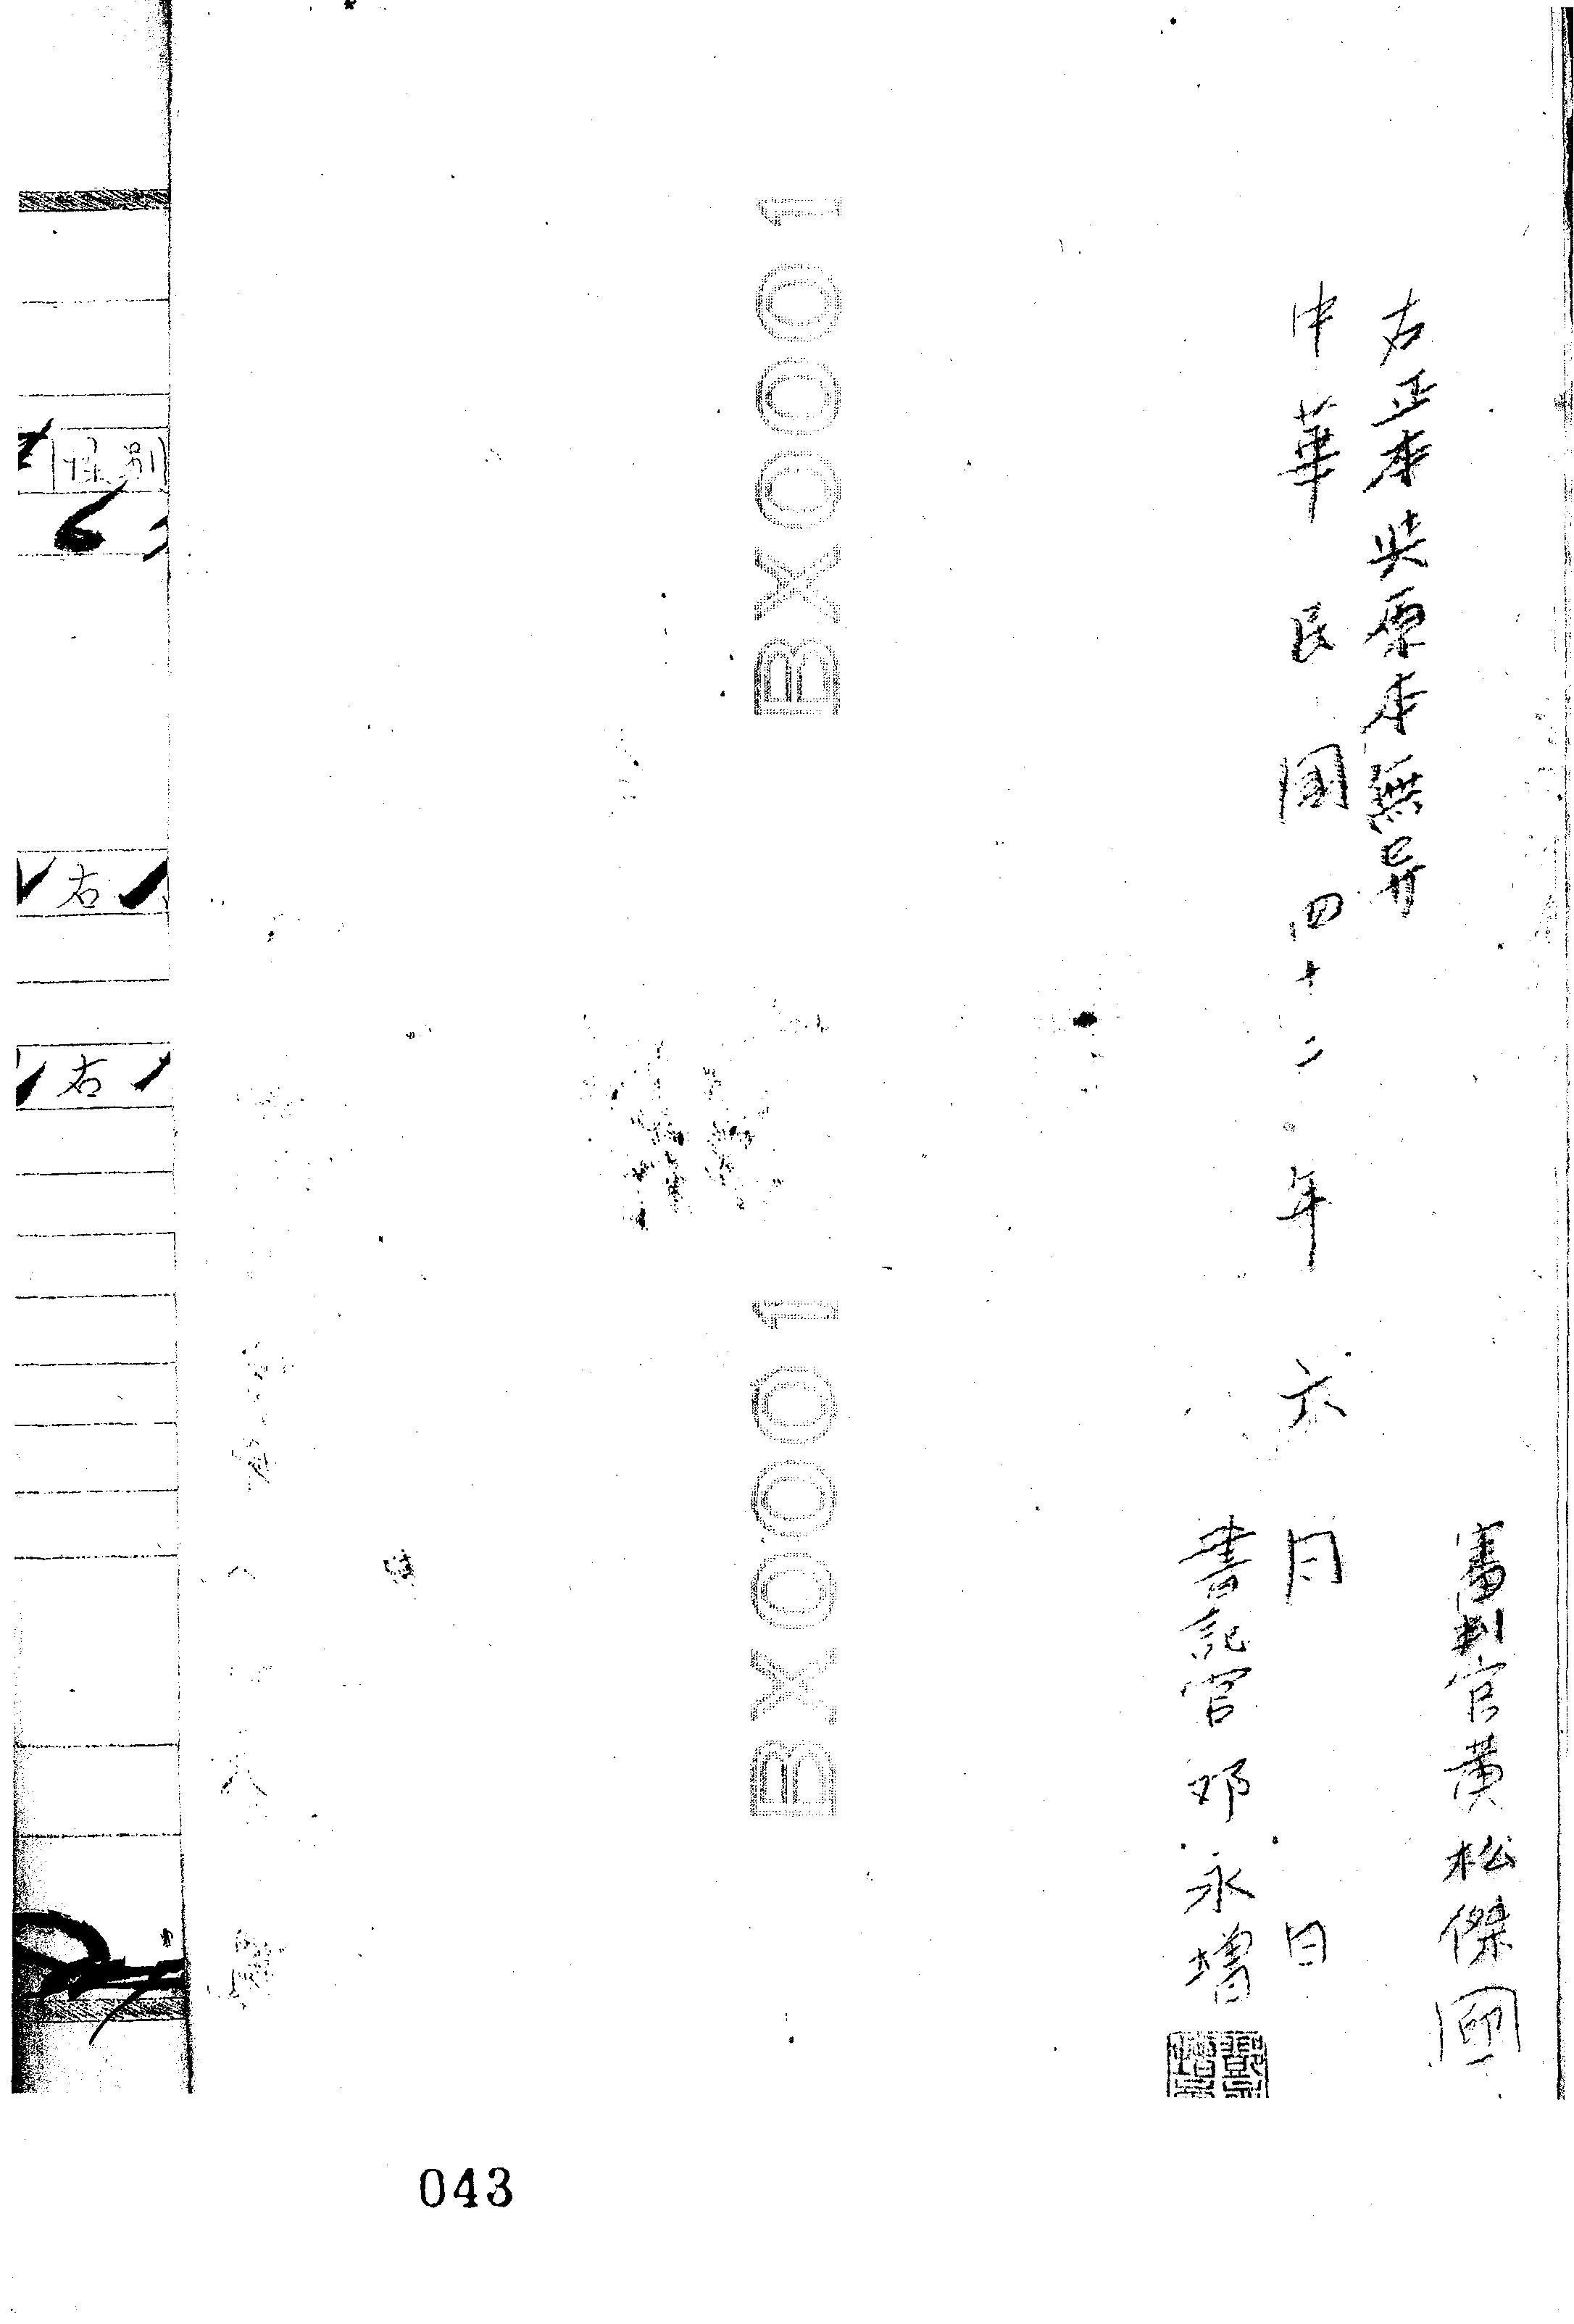 審判官黃松傑印
右正本與原本無异
中華民國四十二年六月日
書記官邓永增
BX0001
BX0001
性別
右
右
043